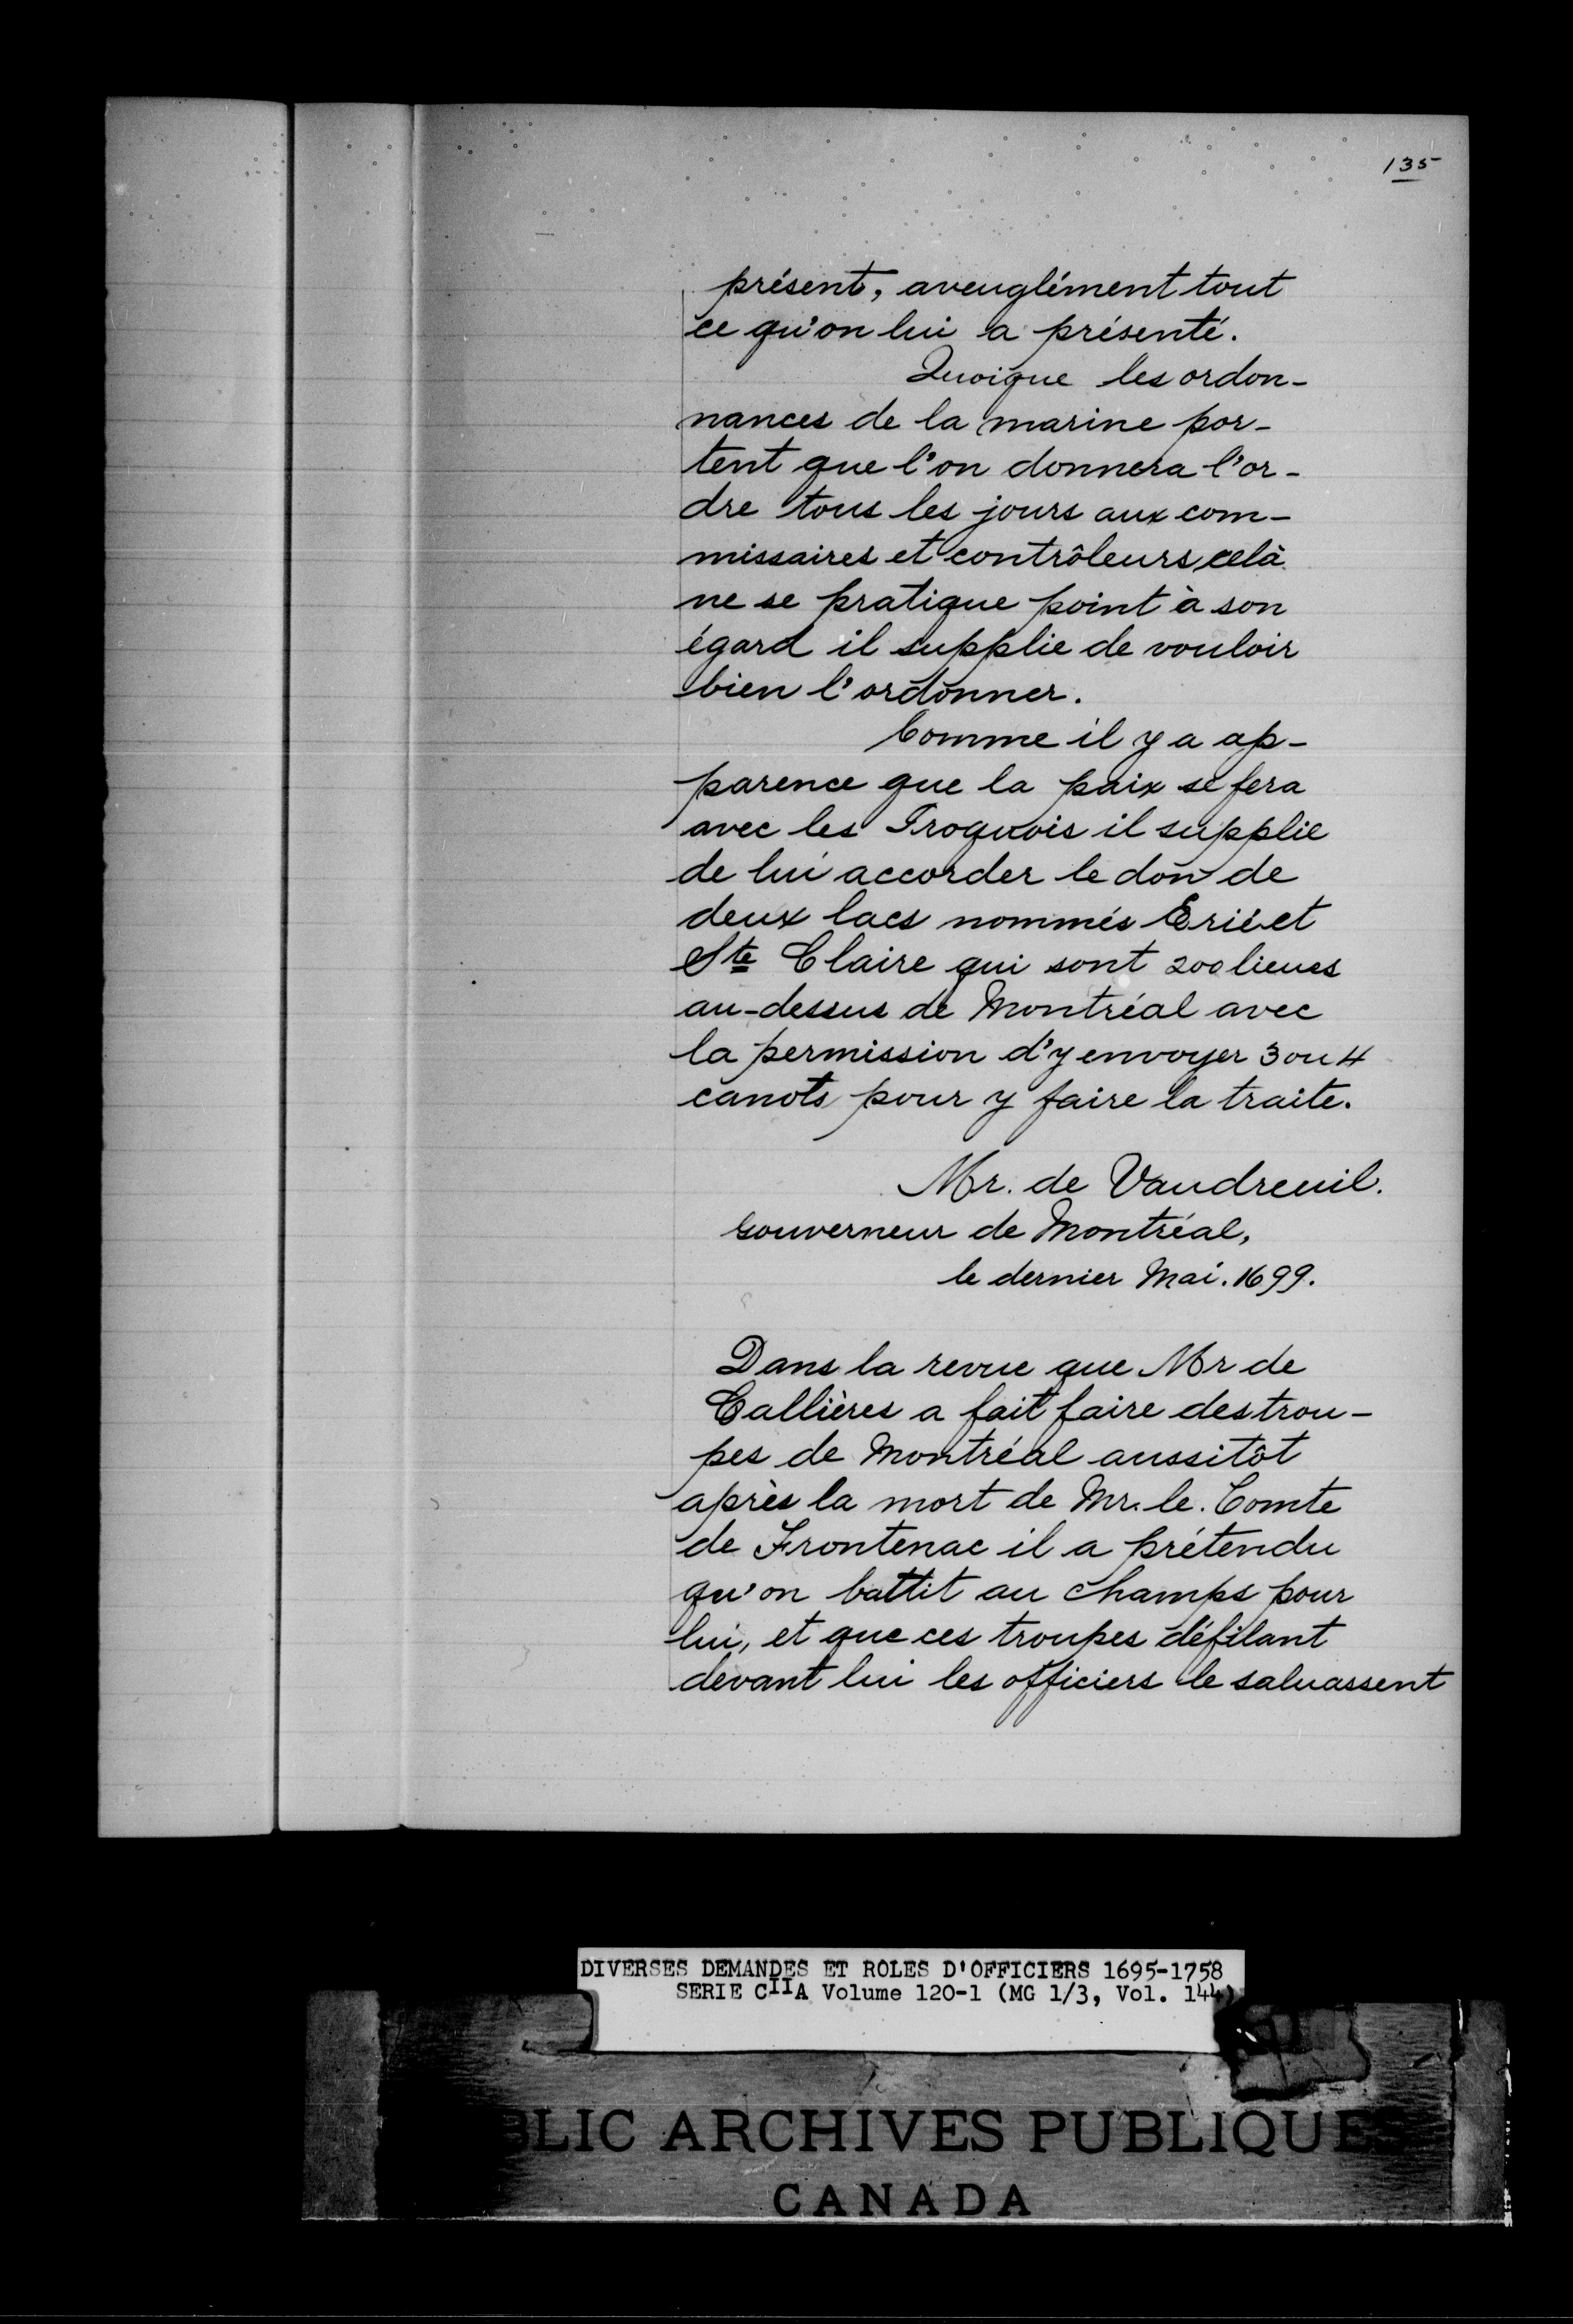 135
présent, aveuglément tout
ce qu'on lui a présenté.
Quoique les ordon-
nances de la marine por-
tent que l'on donnera l'or-
dre tous les jours aux com-
missaires et contrôleurs celà
ne se pratique point à son
égard il supplie de vouloir
bien l'ordonner.
Comme il y a ap-
parence que la paix se fera
avec les Iroquois il supplie
de lui accorder le don de
deux lacs nommés Erié et
Ste Claire qui sont 200 lieues
au-dessus de Montréal avec
la permission d'y envoyer 3 ou 4
canots pour y faire la traite.
Mr. de Vaudreuil.
Gouverneur de Montréal,
le dernier Mai. 1699.
Dans la revue que Mr de
Callières a fait faire des trou-
pes de Montréal aussitôt
après la mort de Mr. le. Comte
de Frontenac il a prétendu
qu'on battit au champs pour
lui, et que ces troupes défilant
devant lui les officiers le saluassent
DIVERSES DEMANDES ET ROLES D'OFFICIERS 1695-1758
SERIE CIIA Volume 120-1 (MG 1/3, Vol. 144)
BLIC ARCHIVES PUBLIQUE
CANADA